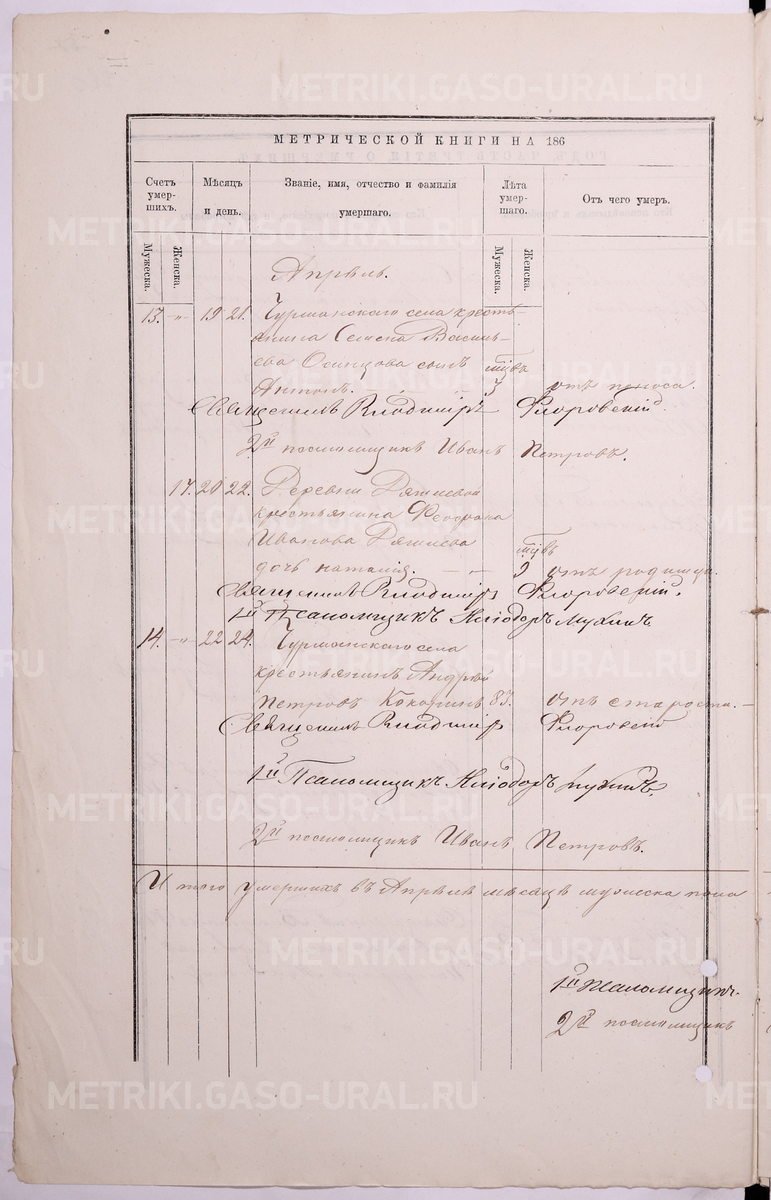 МЕТРИЧЕСКОЙ КНИГИ НА 186
Счетъ умер-шихъ.
Мѣсяцъ и день.
Званіе, имя, отчество и фамилія умершаго.
Лѣта умер-шаго.
Отъ чего умеръ.
Мужеска.
Женска.
Мужеска.
Женска.
Апрѣль.
13. -"- 19 21. Чурманскаго села кресть-
янина Семена Василь-
ева Осинцова сынъ
Антонъ. 3 отъ поноса.
Священникъ Владиміръ Флоровскій
2й псаломщикъ Иванъ Петровъ.
17. 20 22. Деревни
крестьянина Феодора
Иванова
дочь Наталія. 3 отъ родимца.
Священникъ Владиміръ Флоровскій.
1й Псаломщикъ Никодоръ Мухинъ
14. -"- 22 24. Чурманскаго села
крестьянинъ Андрей
Петровъ Кокоринъ 83. отъ старости.
Священникъ Владиміръ Флоровскій
1й Псаломщикъ Никодоръ Мухинъ.
2й псаломщикъ Иванъ Петровъ.
Итого умершихъ въ Апрѣлѣ мѣсяцѣ мужеска пола
1й Псаломщикъ.
2й псаломщикъ
METRIKI.GASO-URAL.RU